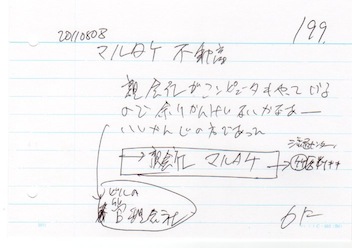 20110808
199
マルタケ 不動産
親会社がコンピュータもやっている
ので余りかんけいないかなあー
いいかんじの方であった
親会社 マルタケ
ビルの
管理会社
6F